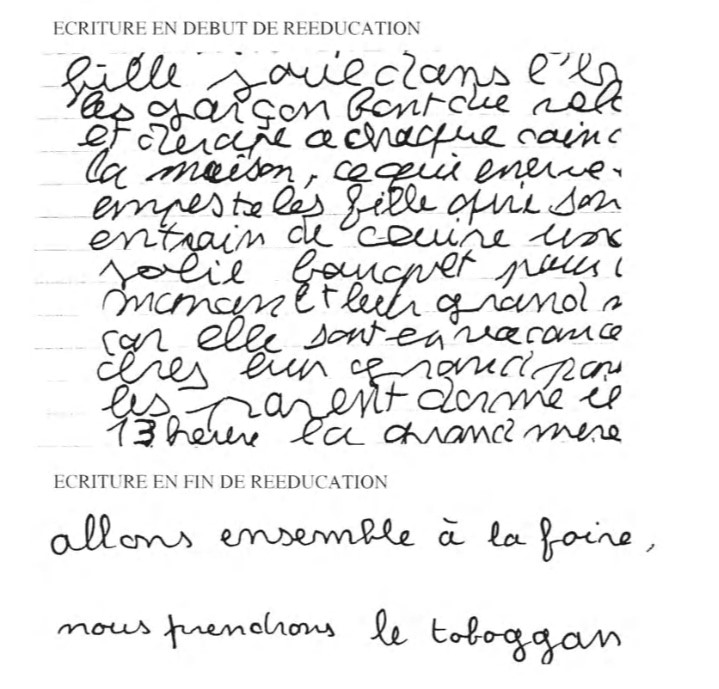 ECRITURE EN DEBUT DE REEDUCATION
fille joue dans l'
les garçon font due
et derape a chaque
la maison, ce qui enerve
empeste les fille qui son
entrain de
jolie bouquet pour
maman et leur grand
car elle sont en vacance
cheres leur grand
les parent dorme il
13 heure la grand mere
ECRITURE EN FIN DE REEDUCATION
allons ensemble à la foire,
nous prendrons le toboggan